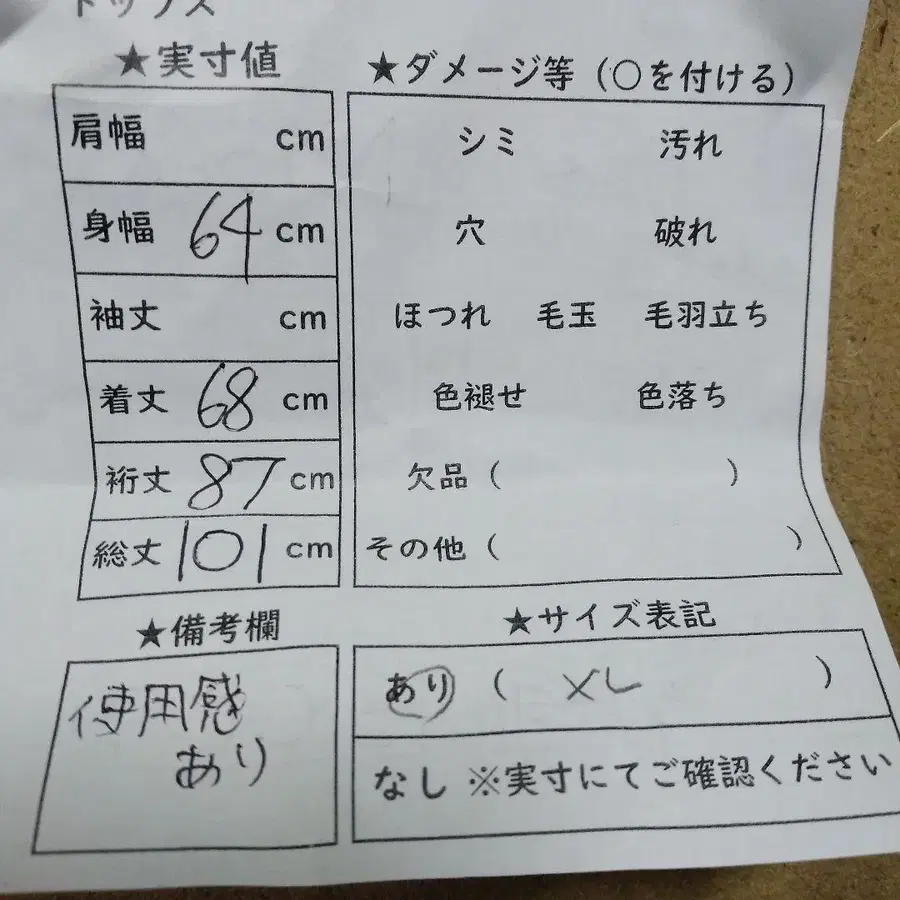 トップス
★実寸値
肩幅 cm
身幅 64 cm
袖丈 cm
着丈 68 cm
裄丈 87 cm
総丈 101 cm
★ダメージ等（○を付ける）
シミ 汚れ
穴 破れ
ほつれ 毛玉 毛羽立ち
色褪せ 色落ち
欠品（ ）
その他（ ）
★備考欄
使用感
あり
★サイズ表記
あり（ XL ）
なし ※実寸にてご確認ください